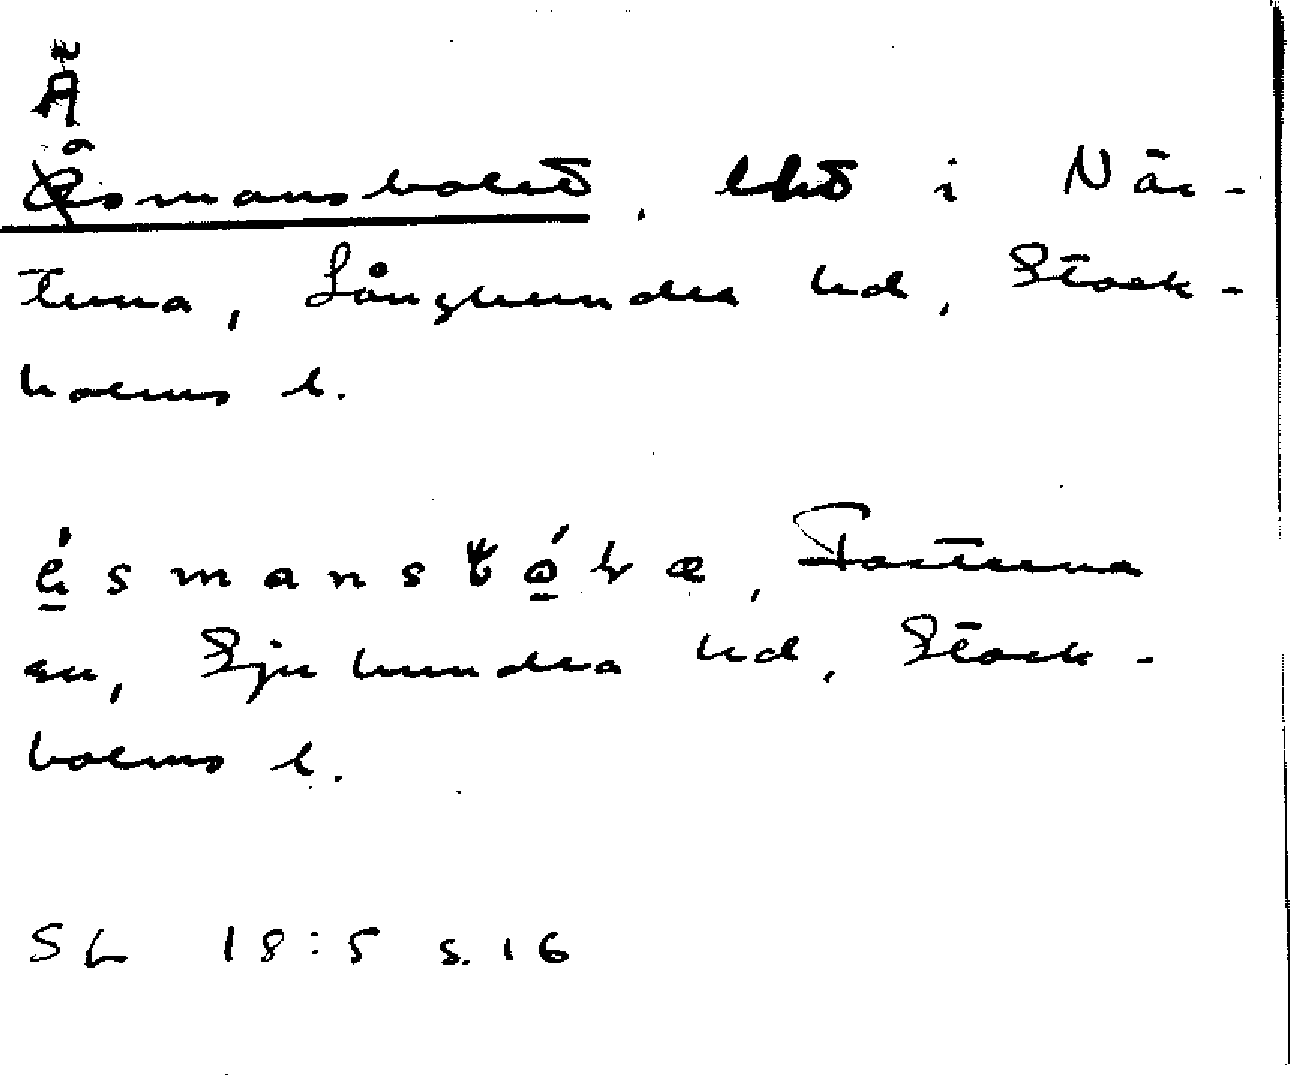 Ä
Åsmansbolet, lht i När-
tuna, Långhundra hd, Stock-
holms l.
é̱smansbó̱ḷæ, Fasterna
sn, Sjuhundra hd, Stock-
holms l.
SL 18:5 s. 16